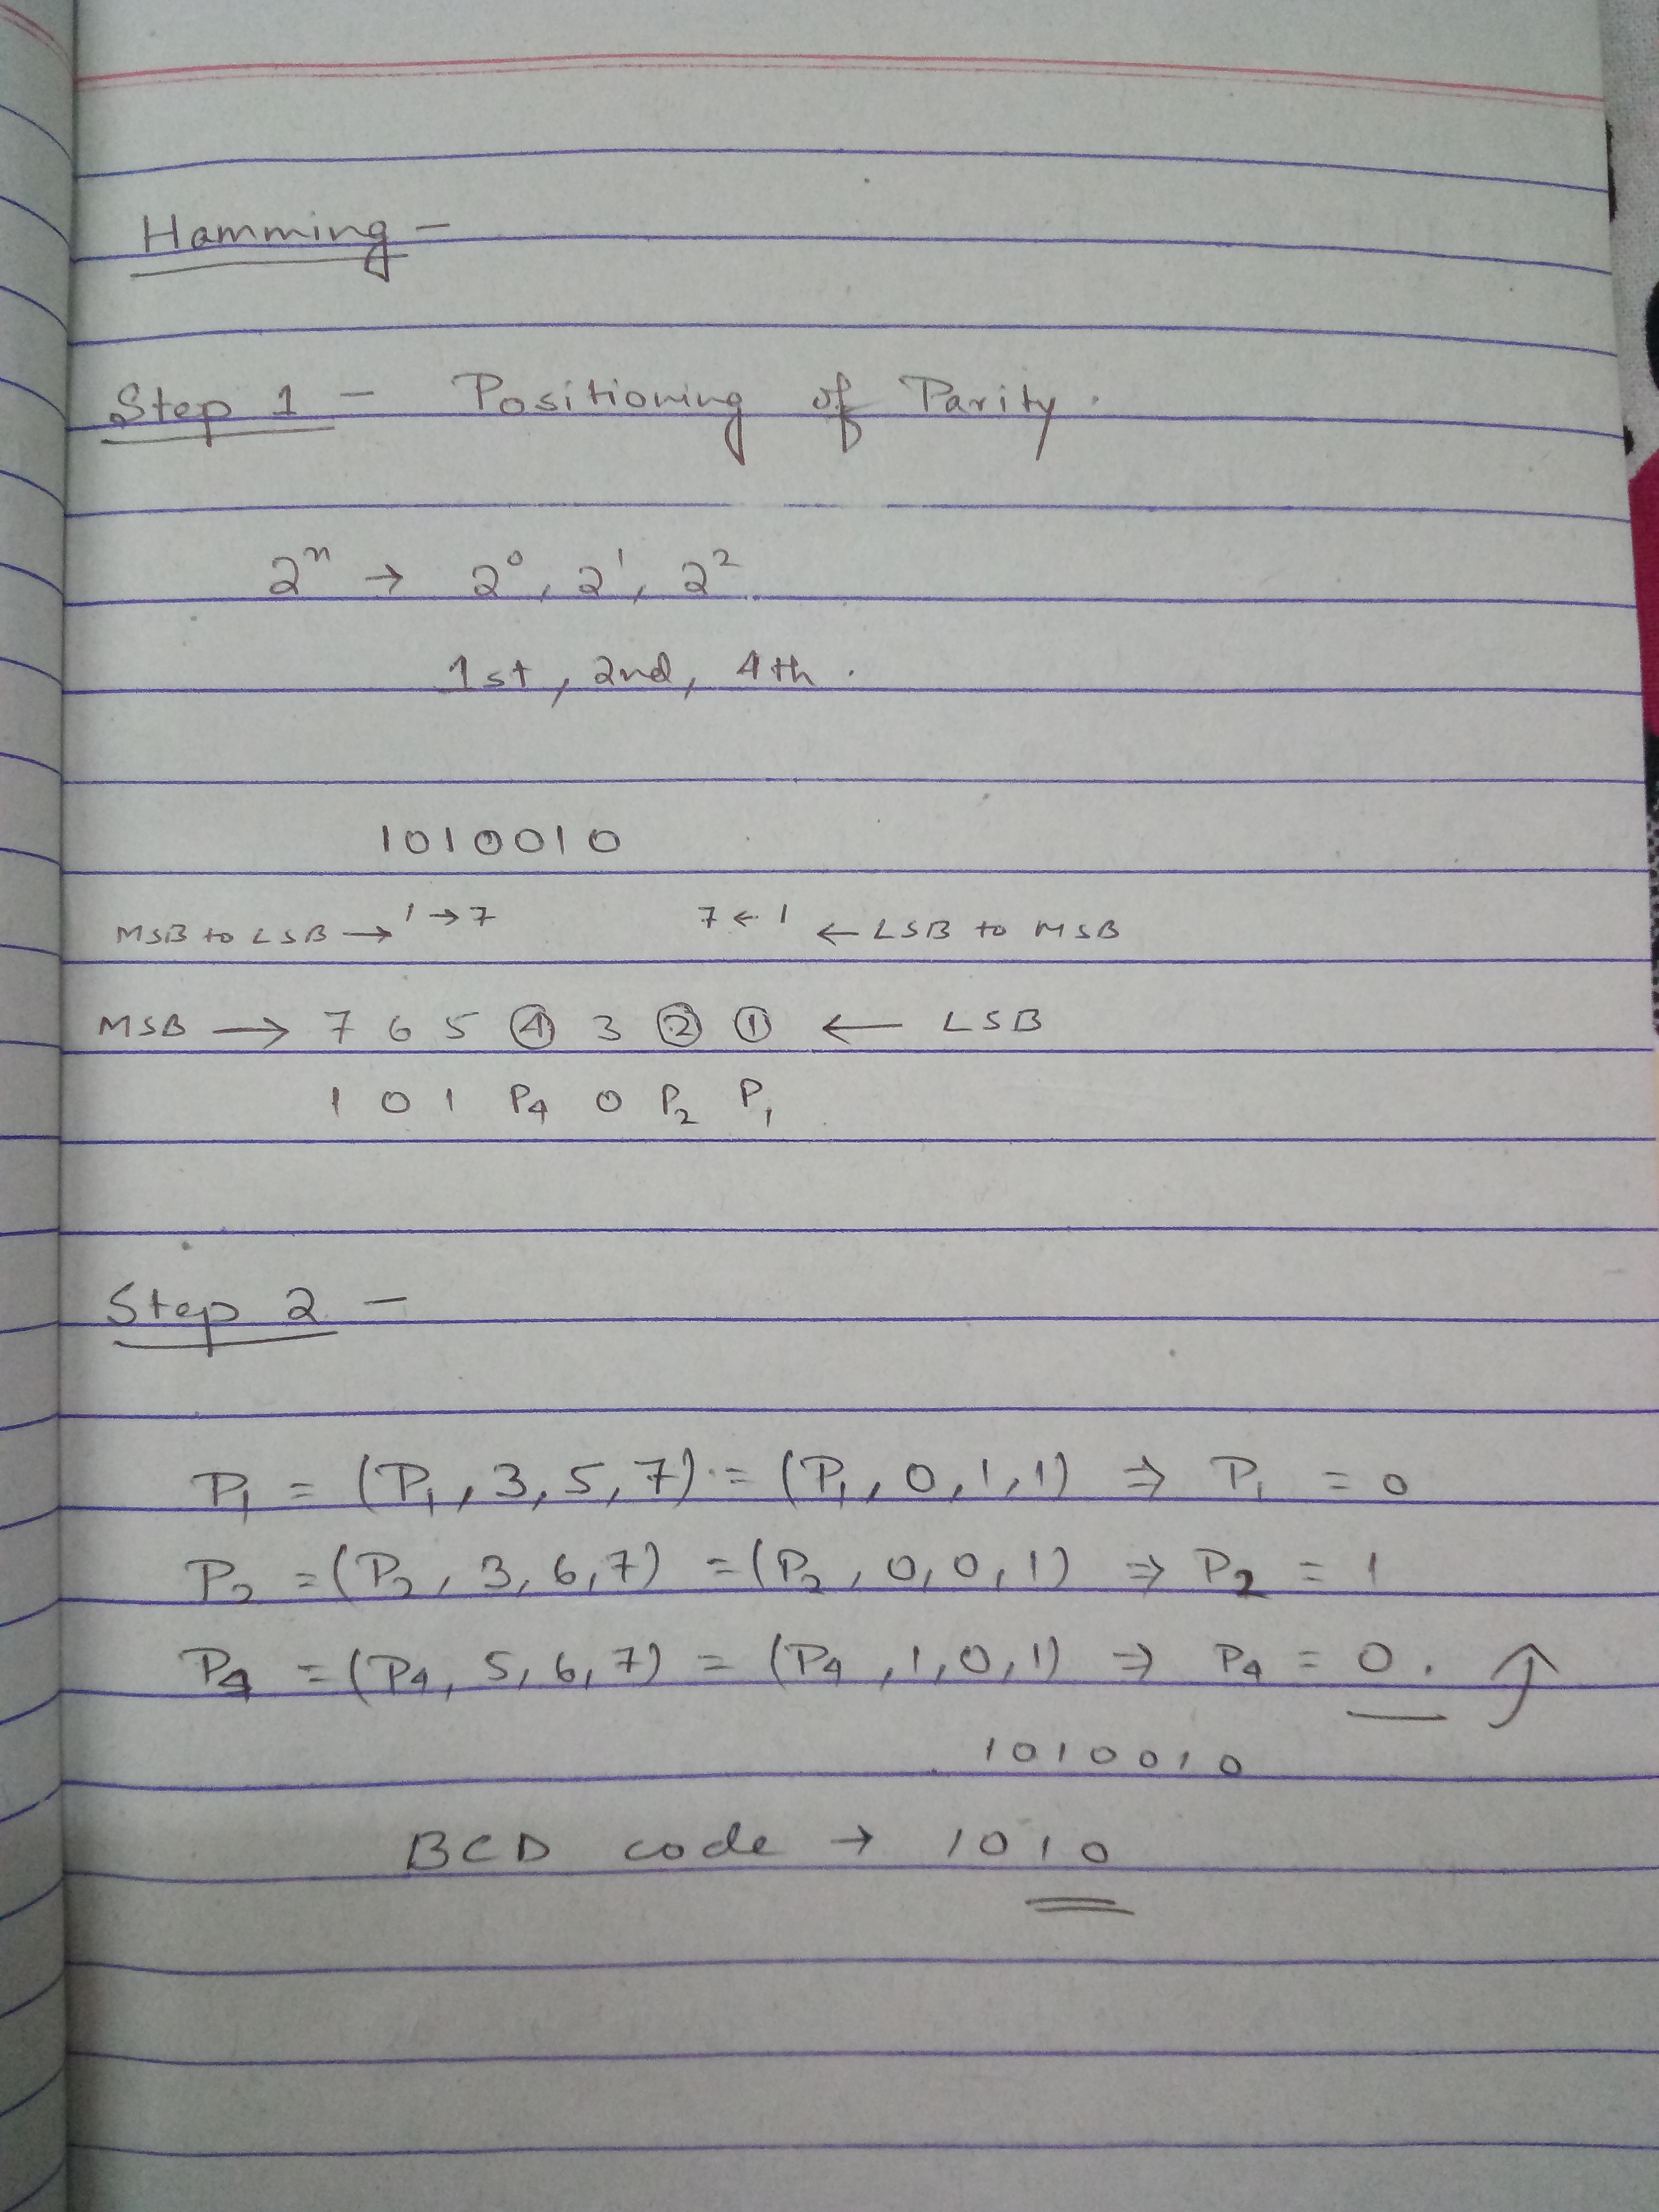 Hamming -
Step 1 - Positioning of Parity.
2ⁿ → 2⁰, 2¹, 2².
1st, 2nd, 4th.
1010010
MSB to LSB → 1 → 7 7 ← 1 ← LSB to MSB
MSB → 7 6 5 ④ 3 ② ① ← LSB
1 0 1 P₄ 0 P₂ P₁
Step 2 -
P₁ = (P₁, 3, 5, 7) = (P₁, 0, 1, 1) ⇒ P₁ = 0
P₂ = (P₂, 3, 6, 7) = (P₂, 0, 0, 1) ⇒ P₂ = 1
P₄ = (P₄, 5, 6, 7) = (P₄, 1, 0, 1) ⇒ P₄ = 0. ↑
1010010
BCD code → 1010